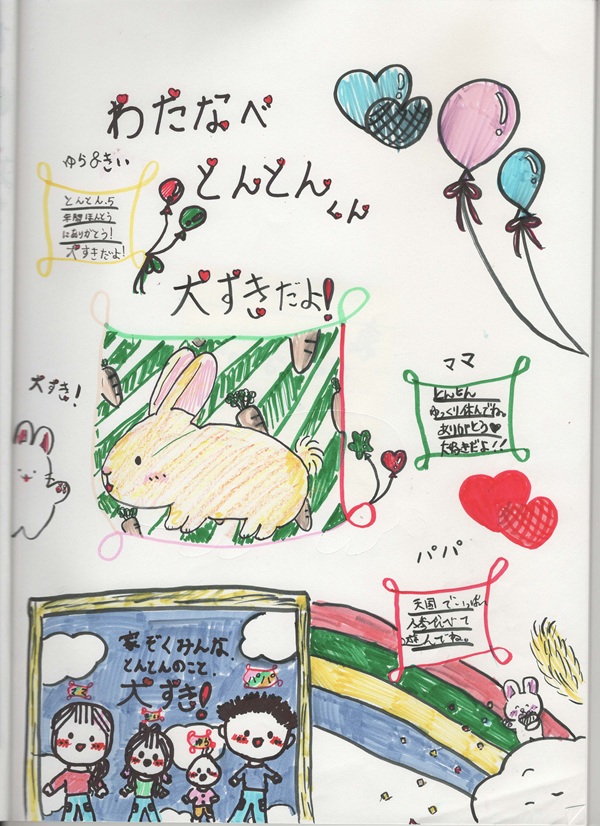 わたなべ
とんとんくん
ゆら&きい
とんとん、5
年間ほんとう
にありがとう!
犬ずきだよ!
犬ずきだよ!
犬ずき!
ママ
とんとん
ゆっくり休んでね。
ありがとう
大好きだよ!!
パパ
天国でいっぱい
食べて
遊んでね。
家ぞくみんな、
とんとんのこと
犬ずき!
パパ
ゆら